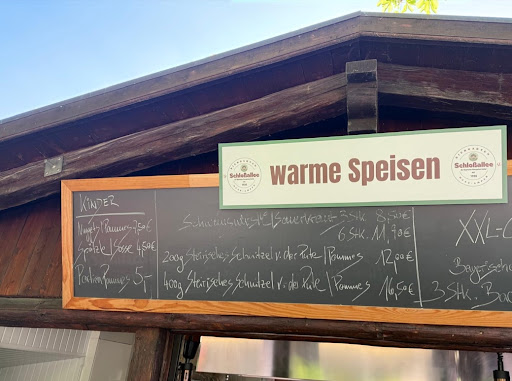 warme Speisen
Schloßallee
Schloßallee
KINDER
Nuggets/Pommes 7,50€
Spätzle/Soße 4,50€
Portion Pommes 5,-
/Sauerkraut 3 Stk. 8,50€
6 Stk. 11,90€
200g Steirisches Schnitzel v. der Pute/Pommes 12,90€
400g Steirisches Schnitzel v. der Pute/Pommes 16,50€
XXL-
3 Stk.